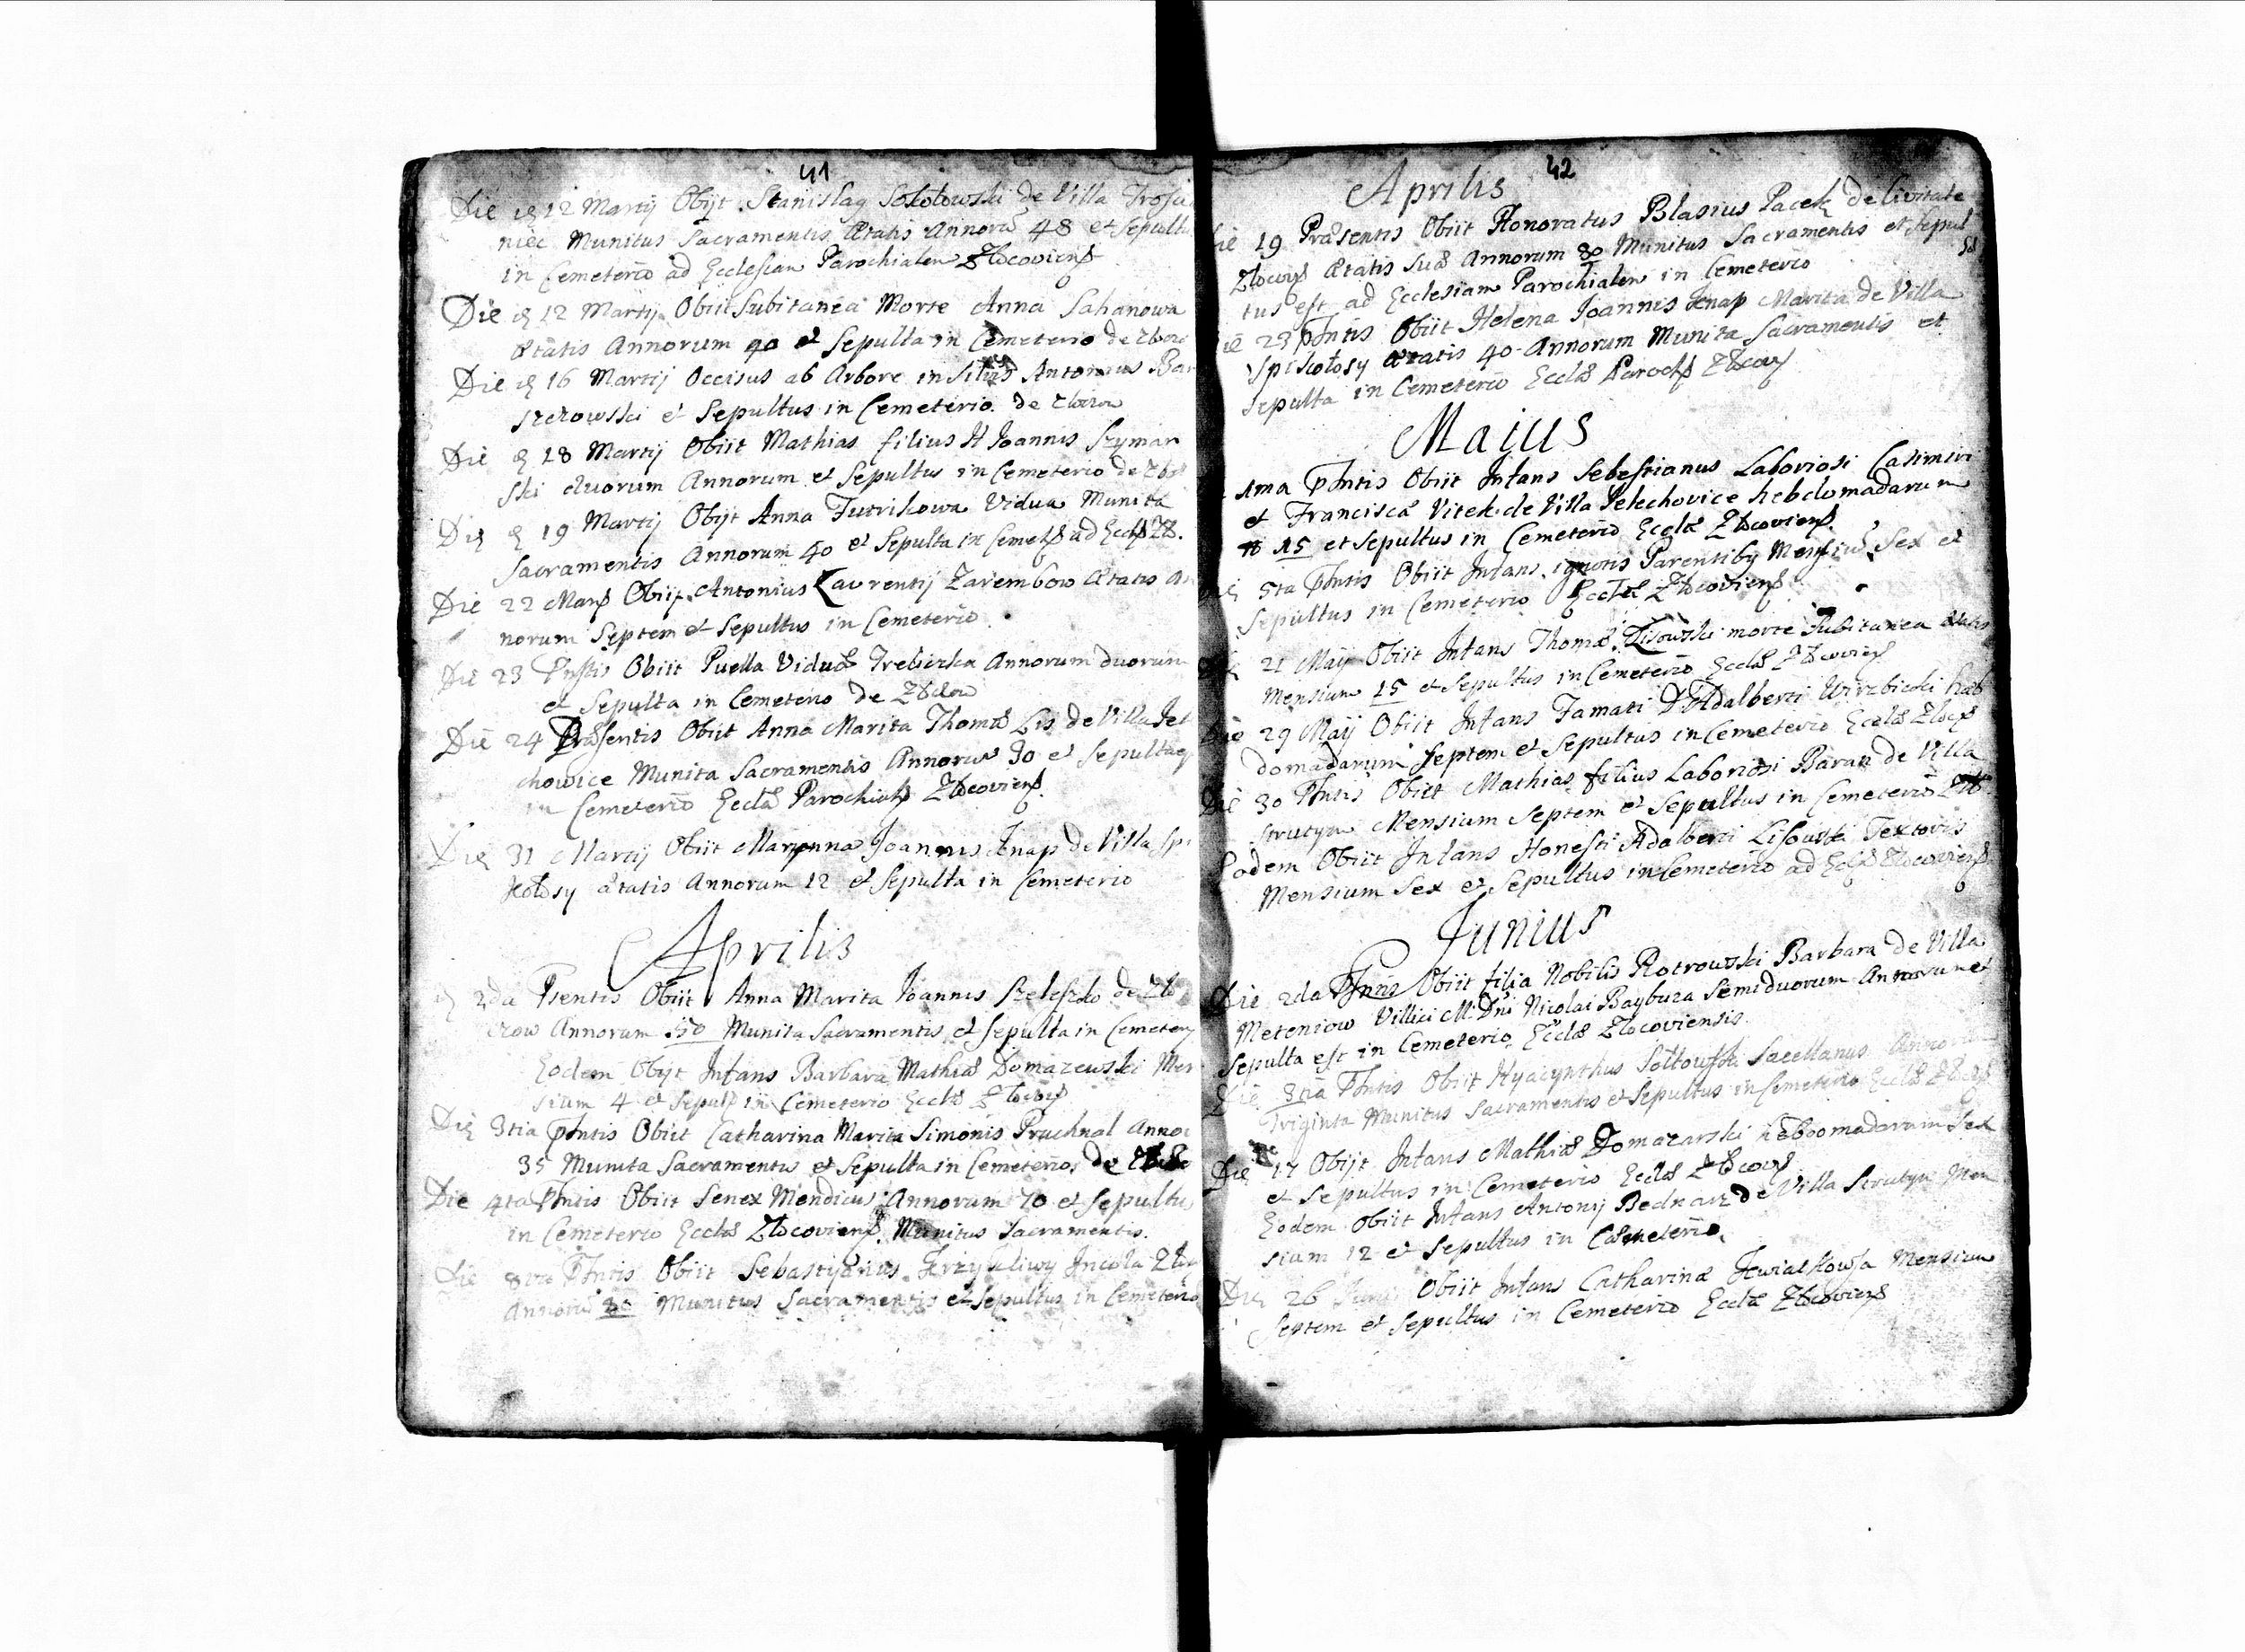 41
Die 12 Martij Obijt Stanislaq Sokołowski de Villa Trości
niec Munitus Sacramentis Ætatis Annorū 48 et Sepultu
in Cemeterio ad Ecclesiam Parochialem Złocoviens
Die 12 Martij Obiit Subitanea Morte Anna Sahanowa
Ætatis Annorum 40 et Sepulta in Cemeterio de
Die 16 Martij Occisus ab Arbore in Antonius Bar
szczowski et Sepultus in Cemeterio de
Die 18 Martij Obiit Mathias filius H Joannis Szyman
ski duorum Annorum et Sepultus in Cemeterio de
Die 19 Martij Obijt Anna Futrikowa Vidua Munita
Sacramentis Annorum 40 et Sepulta in Cemet ad Eccl
Die 22 Mar Obiit Antonius Laurentij Zarembow Ætatis An
norum Septem et Sepultus in Cemeterio
Die 23 Obiit Puella Viduæ Trebicka Annorum duorum
et Sepulta in Cemeterio de
Die 24 Præsentis Obiit Anna Marita Thomæ Lis de Villa Jel
chowice Munita Sacramentis Annorū 30 et Sepultaq
in Cemeterio Eccłæ Parochial Złocoviens
Die 31 Martij Obiit Maryanna Joannis Knap de Villa Spi
kołosy ætatis Annorum 12 et Sepulta in Cemeterio
Aprilis
2da Psentis Obiit Anna Marita Joannis Szeleszko de Zło
czow Annorum 50 Munita Sacramentis et Sepulta in Cemetery
Eodem Obijt Infans Barbara Mathiæ Domazewski Men
sium 4 et Sepul in Cemeterio Eccłæ
Die 3tia Pñtis Obiit Catharina Marita Simonis Pruchnal Annor
35 Munita Sacramentis et Sepulta in Cemeterio de
Die 4ta Pñtis Obiit Senex Mendicus Annorum 70 et Sepultus
in Cemeterio Eccłæ Złocoviens Munitus Sacramentis.
Die 8va Pñtis Obiit Sebastyanus Krzykliwy Incola
Annorū Munitus Sacramentis et Sepultus in Cemeterio
42
Aprilis
Die 19 Præsentis Obiit Honoratus Blasius Pacek de Civitate
Złocov Ætatis Suæ Annorum 80 Munitus Sacramentis et Sepul
tus est ad Ecclesiam Parochialem in Cemeterio
Die 23 Pñtis Obiit Helena Joannis Knap Marita de Villa
Spikołosy Ætatis 40 Annorum Munita Sacramentis et
Sepulta in Cemeterio Eccłæ Paroch Złocov
Majus
1ma Pñtis Obiit Infans Sebestianus Laboriosi Casimiri
et Franciscæ Vitek de Villa Jelechovice hebdomadarum
15 et Sepultus in Cemeterio Eccłæ Złocoviens
Die 5ta Pñtis Obiit Infans ignotis Parentibq Mensiū Sex et
Sepultus in Cemeterio Eccłæ Złocoviens
Die 21 Maij Obiit Infans Thomæ Lisowski morte Subitanea ætatis
Mensium 15 et Sepultus in Cemeterio Eccłæ Złocoviens
Die 29 Maij Obiit Infans Famati D Adalberti Wirzbicki heb
domadarum Septem et Sepultus in Cemeterio Eccłæ Złoc
Die 30 Pñtis Obiit Mathias filius Laboriosi Baran de Villa
Strutyn Mensium Septem et Sepultus in Cemeterio
Eodem Obiit Infans Honesti Adalberti Lisowski Textoris
Mensium Sex et Sepultus in Cemeterio ad Eccłæ Złocoviens
Junius
Die 2da Pñtis Obiit filia Nobilis Piotrowski Barbara de Villa
Meteniow Villici M Dni Nicolai Baybuza Semi duorum Annorum et
Sepulta est in Cemeterio Eccłæ Złocoviensis
Die 3tia Pñtis Obiit Hyacynthus Sołtowski Sacellanus Annorum
Triginta Munitus Sacramentis et Sepultus in Cemeterio Eccłæ
Die 17 Obijt Infans Mathiæ Domazarski hebdomadarum Sex
et Sepultus in Cemeterio Eccłæ Złocov
Eodem Obiit Infans Antonij Bednarz de Villa Strutyn Men
sium 12 et Sepultus in Cæmeterio
Die 26 Obiit Infans Catharinæ Kwiatkowska Mensium
Septem et Sepultus in Cemeterio Eccłæ Złocoviens